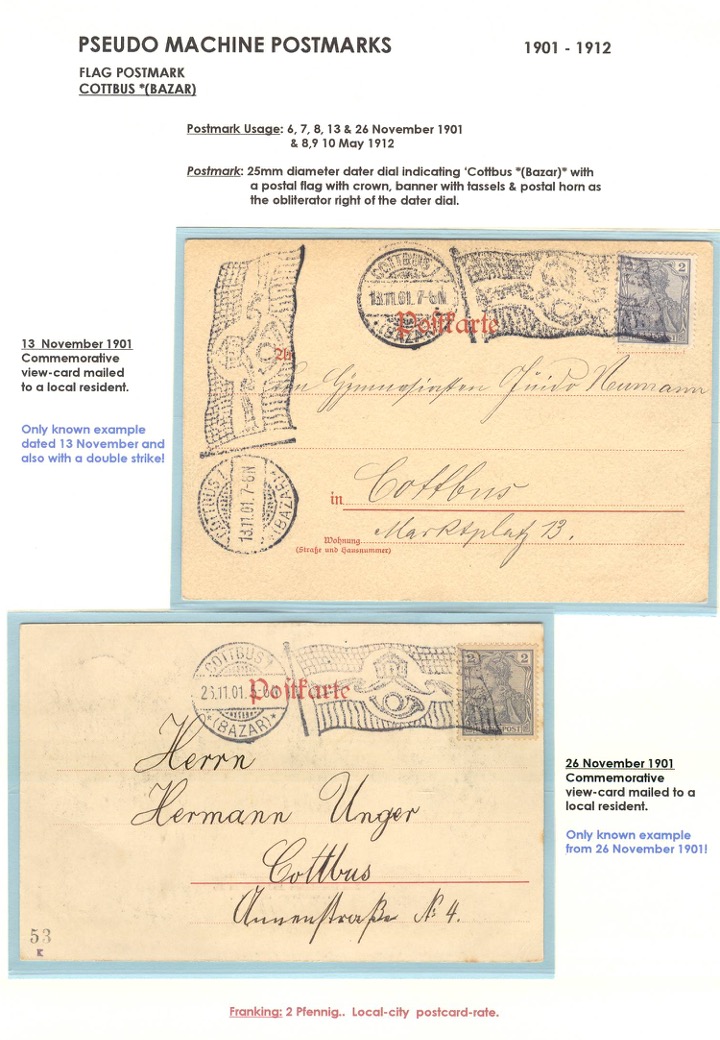 PSEUDO MACHINE POSTMARKS 1901 - 1912
FLAG POSTMARK
COTTBUS *(BAZAR)
Postmark Usage: 6, 7, 8, 13 & 26 November 1901
& 8,9 10 May 1912
Postmark: 25mm diameter dater dial indicating 'Cottbus *(Bazar)* with
a postal flag with crown, banner with tassels & postal horn as
the obliterator right of the dater dial.
13 November 1901
Commemorative
view-card mailed
to a local resident.
Only known example
dated 13 November and
also with a double strike!
COTTBUS 1
13.11.01. 7-8N
*(BAZAR)*
2
Postkarte
An
den Gymnasiasten Guido Neumann
in Cottbus
Marktplatz 13.
Wohnung
(Straße und Hausnummer)
COTTBUS 1
13.11.01. 7-8N
*(BAZAR)*
COTTBUS 1
26.11.01.
*(BAZAR)*
Postkarte
2 2
Herrn
Hermann Unger
Cottbus
Annenstraße No 4.
53
K
26 November 1901
Commemorative
view-card mailed to a
local resident.
Only known example
from 26 November 1901!
Franking: 2 Pfennig.. Local-city postcard-rate.